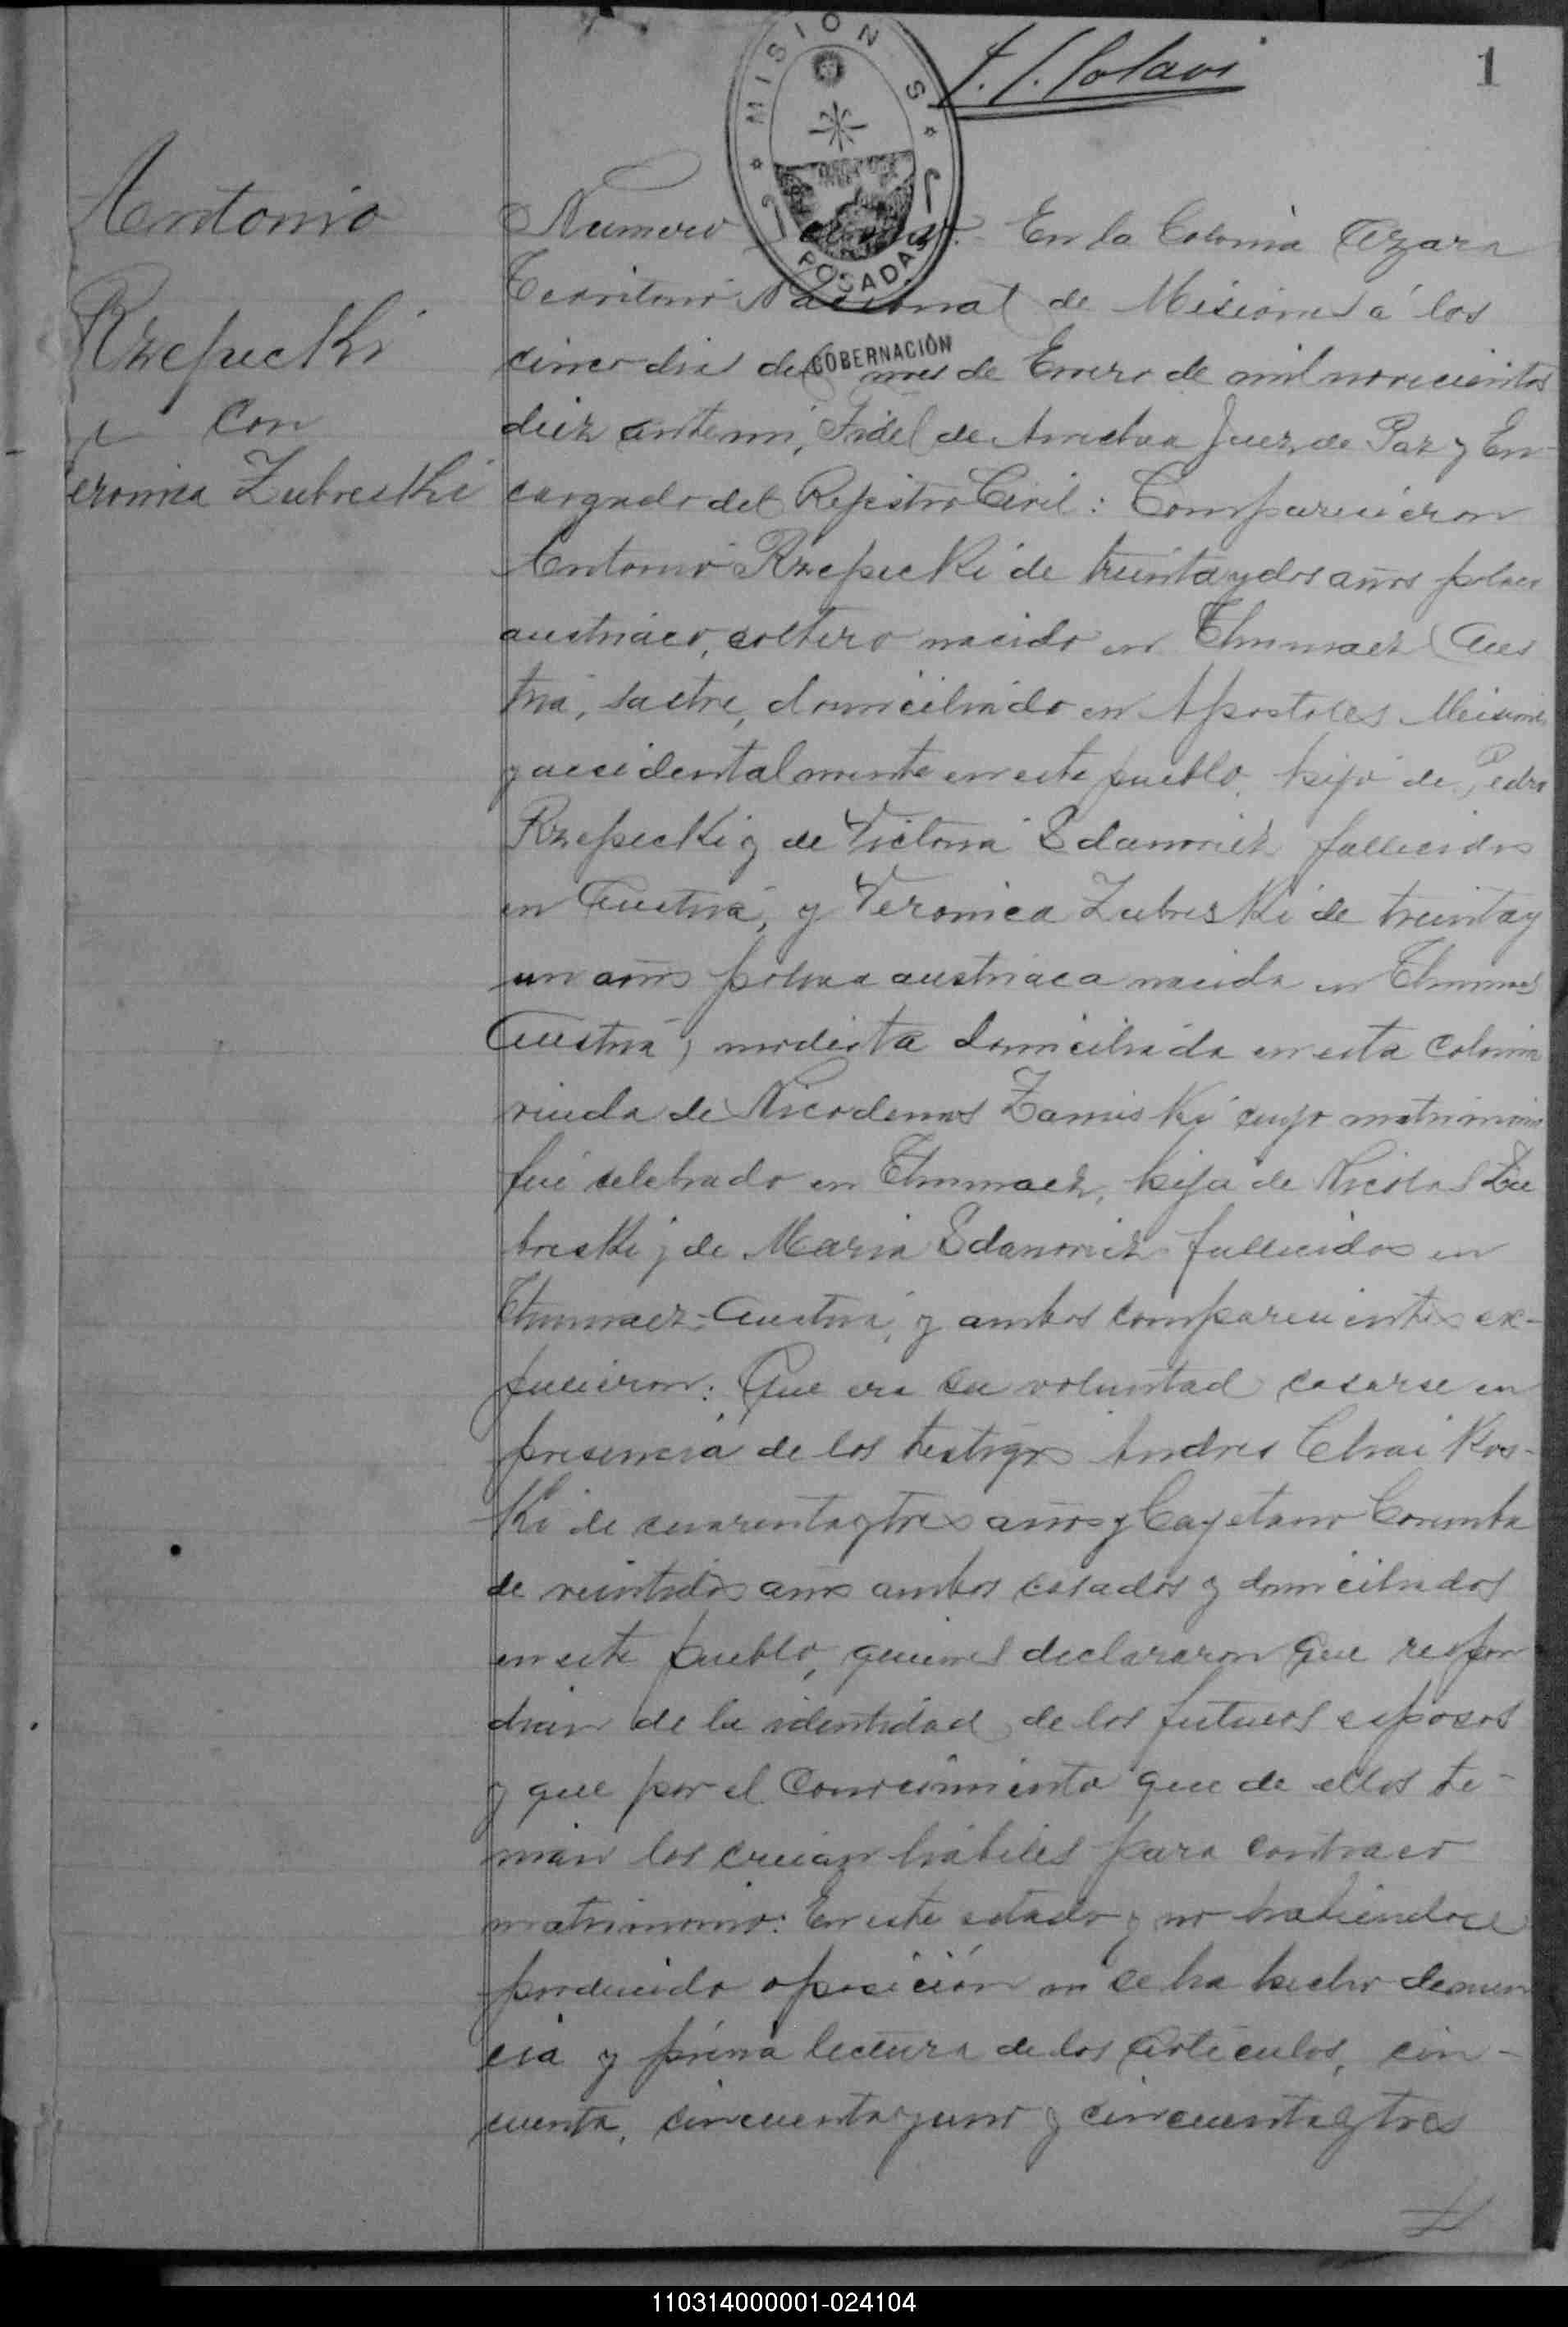 1
MISIONES
POSADAS
GOBERNACIÓN
Antonio
Rzepecki
con
eronica Zubreski
Numero En la Colonia Azara
Territorio Nacional de Misiones á los
cinco dias del mes de Enero de mil novecientos
diez ante mi, Fidel de Juez de Paz y En-
cargado del Registro Civil: Comparecieron
Antonio Rzepecki de treinta y dos años polaco
austriaco, soltero nacido en Thumacz (Aus
tria, sastre, domiciliado en Apostoles Misiones
y accidentalmente en este pueblo, hijo de Pedro
Rzepecki y de Victoria Sdanovich fallecidos
en Austria, y Veronica Zubreski de treinta y
un años polaca austriaca nacida en
Austria) modista domiciliada en esta colonia
viuda de Nicodemus Zamiski cuyo matrimonio
fué celebrado en Thumacz, hija de Nicolas Zu
breski y de Maria Sdanovich fallecidos en
Thumacz-Austria, y ambos comparecientes ex-
pucieron: Que era su voluntad casarse en
presencia de los testigos Andres Chaikos-
ki de cuarenta y tres años y Cayetano
de veintidos años ambos casados y domiciliados
en este pueblo, quienes declararon que respon
dian de la identidad de los futuros esposos
y que por el conocimiento que de ellos te-
nian los creian hábiles para contraer
matrimonio: En este estado y no habiendoce
producido oposición ni se ha hecho denun
cia y prévia lectura de los articulos, cin-
cuenta, cincuenta y uno y cincuenta y tres
110314000001-024104